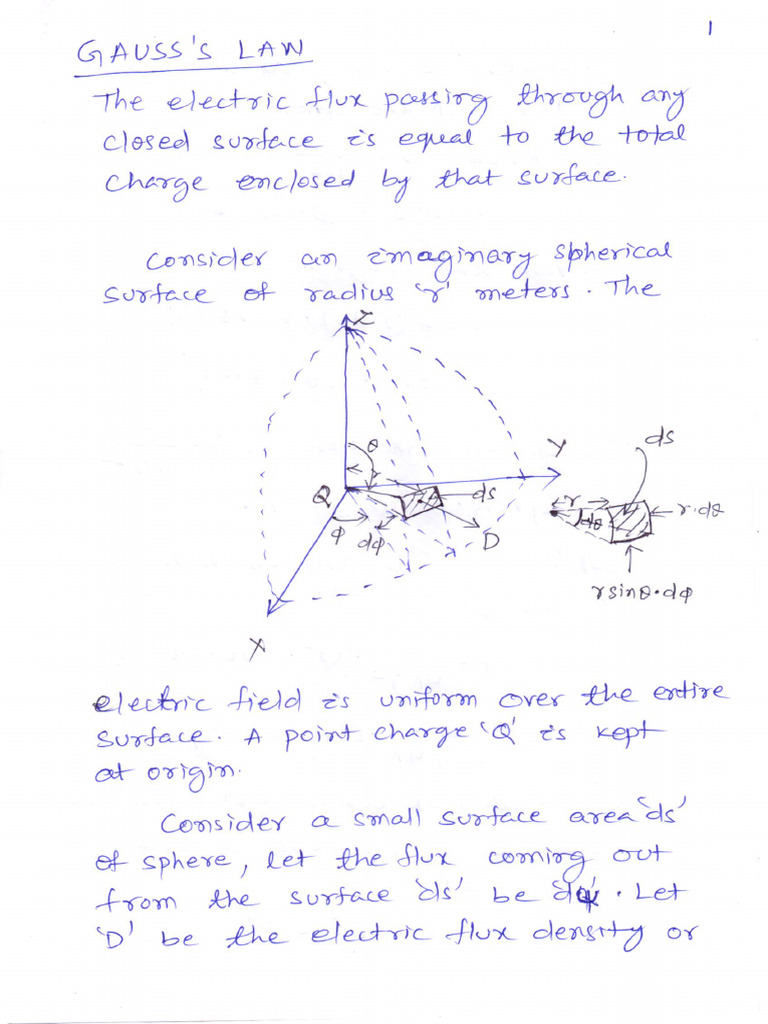 1
GAUSS'S LAW
The electric flux passing through any
closed surface is equal to the total
charge enclosed by that surface.
Consider an imaginary spherical
surface of radius 'r' meters. The
Z
θ
r
Y
Q
ds
φ
dφ
D
X
ds
r
dθ
r.dθ
r sinθ.dφ
electric field is uniform over the entire
surface. A point charge 'Q' is kept
at origin.
Consider a small surface area 'ds'
of sphere, let the flux coming out
from the surface 'ds' be 'dψ'. Let
'D' be the electric flux density or